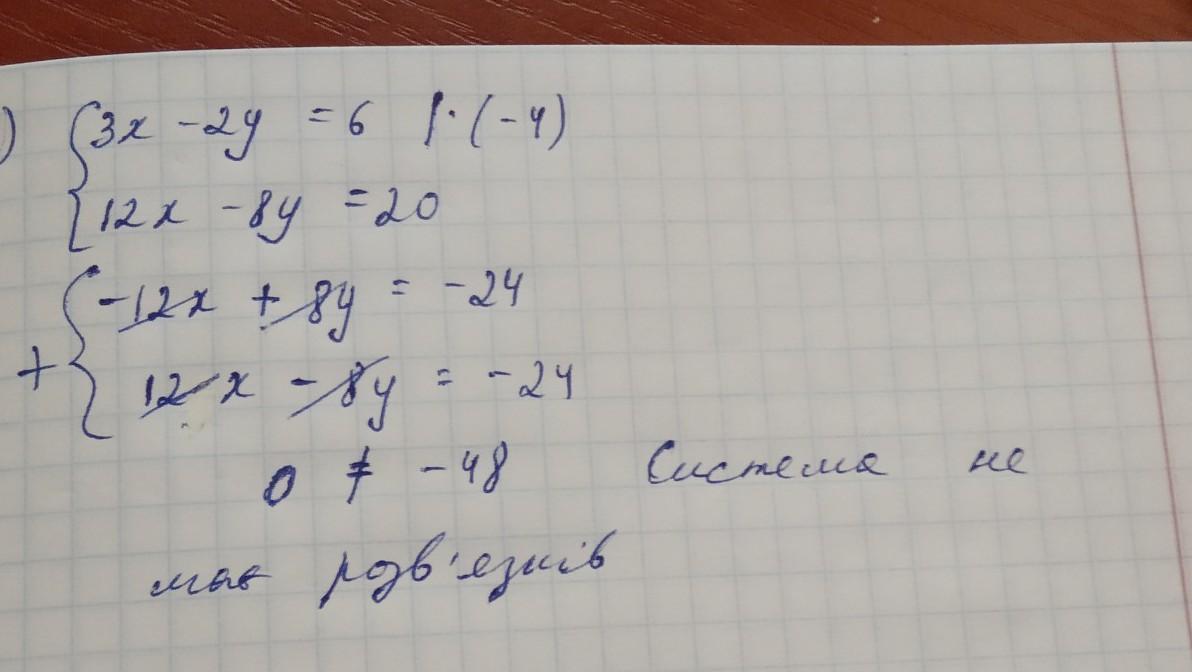 ) { 3x - 2y = 6 |· (-4)
12x - 8y = 20
+ { -12x + 8y = -24
12x - 8y = -24
0 ≠ -48 Система не
має розв'язків